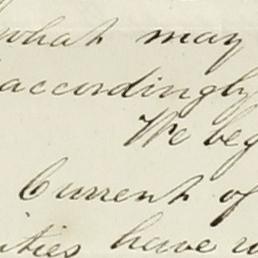 what may
accordingly
We beg
Current of
ities have